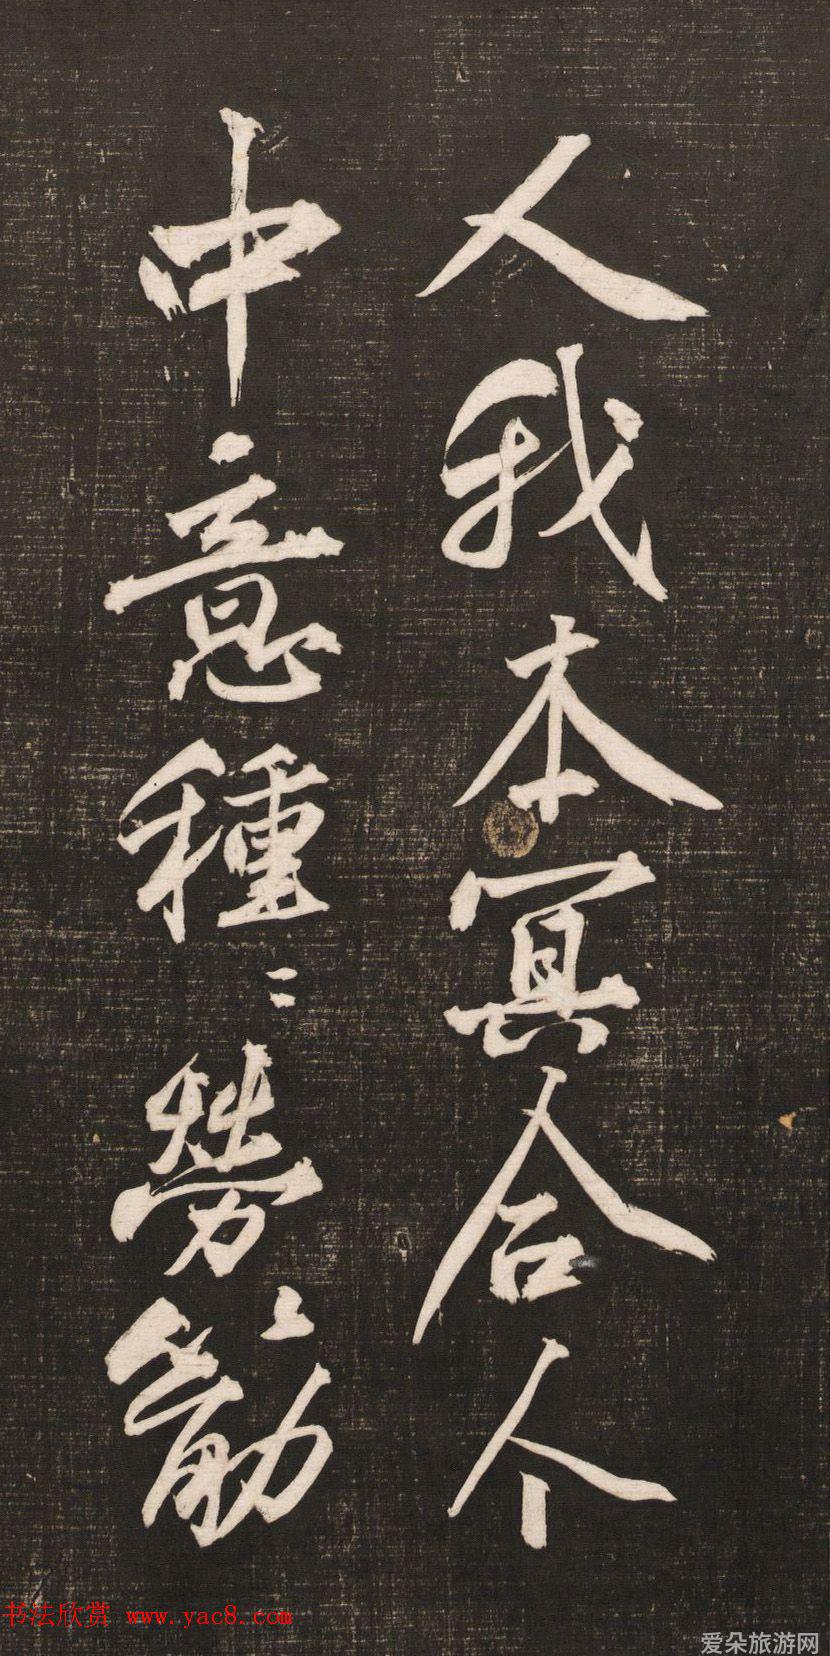 人我本冥合个
中意種〻勞筋
书法欣赏 www.yac8.com
爱朵旅游网